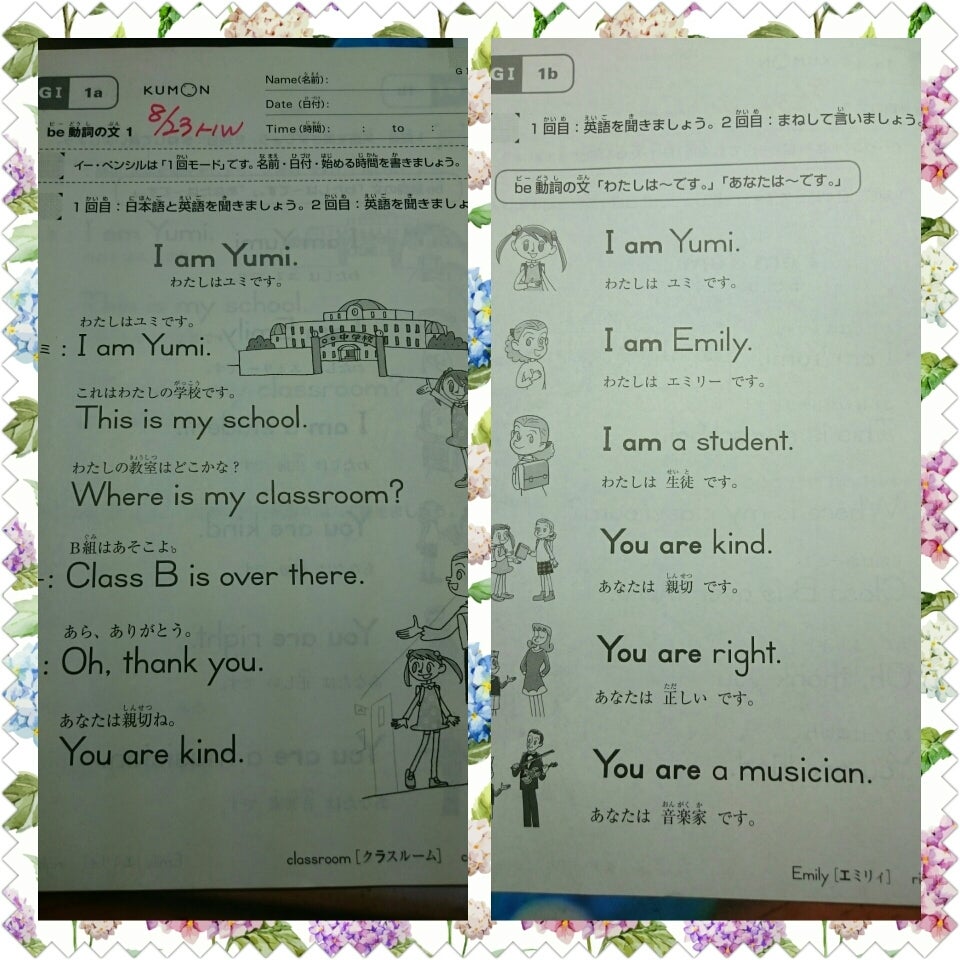 GI 1a
KUMON
Name(名前):
G I
Date (日付):
8/23 HW
be 動詞の文 1
Time (時間): : to :
イー・ペンシルは「1回モード」です。名前・日付・始める時間を書きましょう。
1回目:日本語と英語を聞きましょう。2回目:英語を聞きましょ
I am Yumi.
わたしはユミです。
わたしはユミです。
: I am Yumi.
中学校
これはわたしの学校です。
This is my school.
わたしの教室はどこかな?
Where is my classroom?
B組はあそこよ。
: Class B is over there.
あら、ありがとう。
: Oh, thank you.
あなたは親切ね。
You are kind.
classroom [クラスルーム]
GI 1b
1回目:英語を聞きましょう。2回目:まねして言いましょう。
be 動詞の文「わたしは〜です。」「あなたは〜です。」
I am Yumi.
わたしは ユミ です。
I am Emily.
わたしは エミリー です。
I am a student.
わたしは 生徒 です。
You are kind.
あなたは 親切 です。
You are right.
あなたは 正しい です。
You are a musician.
あなたは 音楽家 です。
Emily [エミリィ] ri